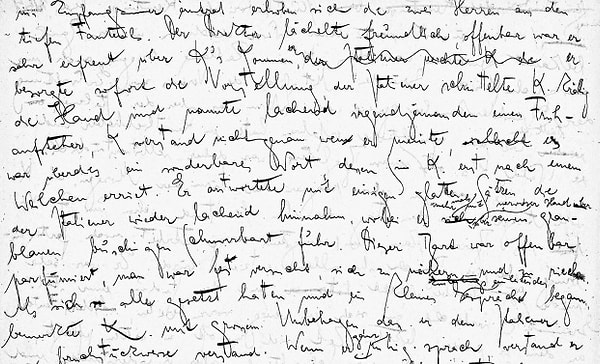 ins Empfangszimmer eintrat erhoben sich die zwei Herren aus den
tiefen Fauteuils. Der Direktor lächelte freundlich, offenbar war er
sehr erfreut über K's Kommen er
besorgte sofort die Vorstellung der Italiener schüttelte K. kräftig
die Hand und nannte lachend irgendjemanden einen Früh-
aufsteher, K verstand nicht genau wen er meinte, es
war überdies ein sonderbares Wort dessen Sinn K. erst nach einem
Weilchen erriet. Er antwortete mit einigen glatten Sätzen die
der Italiener wieder lachend hinnahm, wobei er mehrmals mit nervöser Hand über seinen grau-
blauen buschigen Schnurrbart fuhr. Dieser Bart war offenbar
parfümiert, man war fast versucht, sich zu nähern und zu riechen
Als sich alle gesetzt hatten und ein kleines einleitendes Gespräch begann,
bemerkte K. mit grossem Unbehagen, dass er den Italiener
bruchstückweise verstand. Wenn er ganz ruhig sprach verstand er